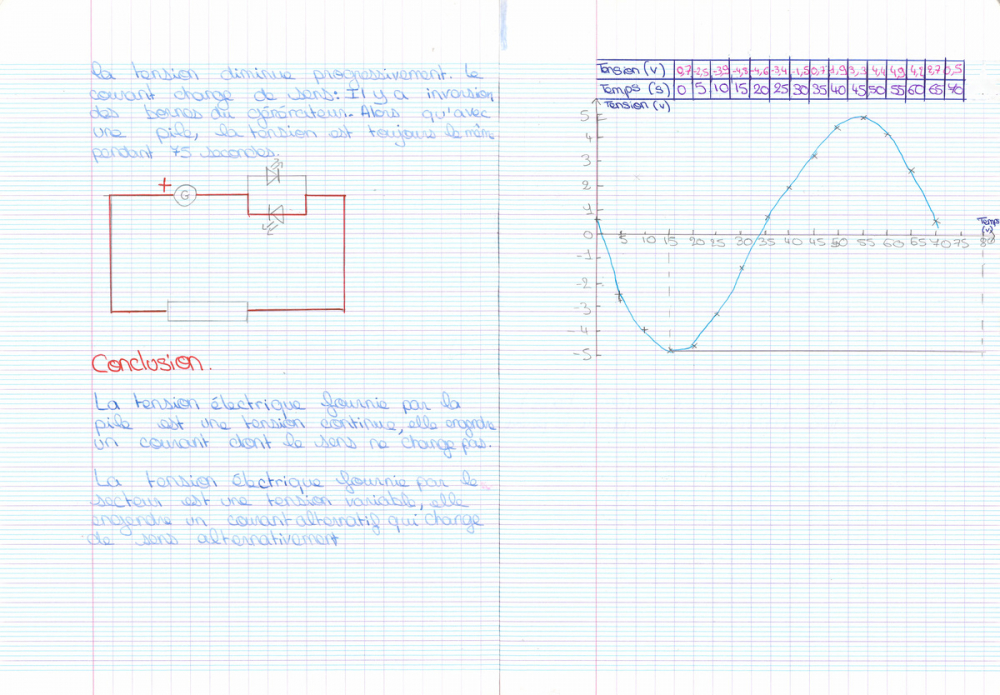 la tension diminue progressivement. Le
courant change de sens: Il y a inversion
des bornes du générateur. Alors qu'avec
une pile, la tension est toujours la même
pendant 75 secondes.
+
G
Conclusion.
La tension électrique fournie par la
pile est une tension continue, elle engendre
un courant dont le sens ne change pas.
La tension électrique fournie par le
secteur est une tension variable, elle
engendre un courant alternatif qui change
de sens alternativement
Tension (V) 0,7 -2,5 -3,9 -4,8 -4,6 -3,4 -1,5 0,7 1,9 3,3 4,4 4,9 4,2 2,7 0,5
Temps (s) 0 5 10 15 20 25 30 35 40 45 50 55 60 65 70
Tension (v)
5
4
3
2
1
0
-1
-2
-3
-4
-5
5 10 15 20 25 30 35 40 45 50 55 60 65 70 75 80
Temps